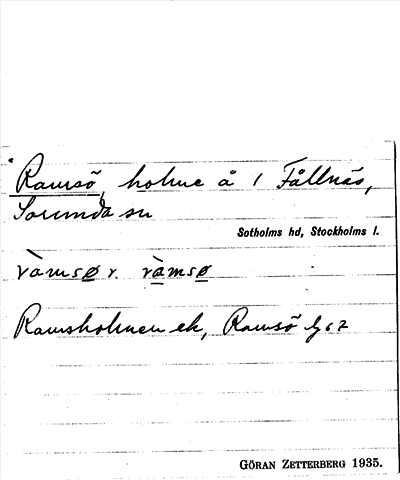 Ramsö, holme å 1 Fållnäs,
Sorunda sn
Sotholms hd, Stockholms l.
ràmsø r. ràmsø
Ramsholmen ek, Ramsö
GÖRAN ZETTERBERG 1935.